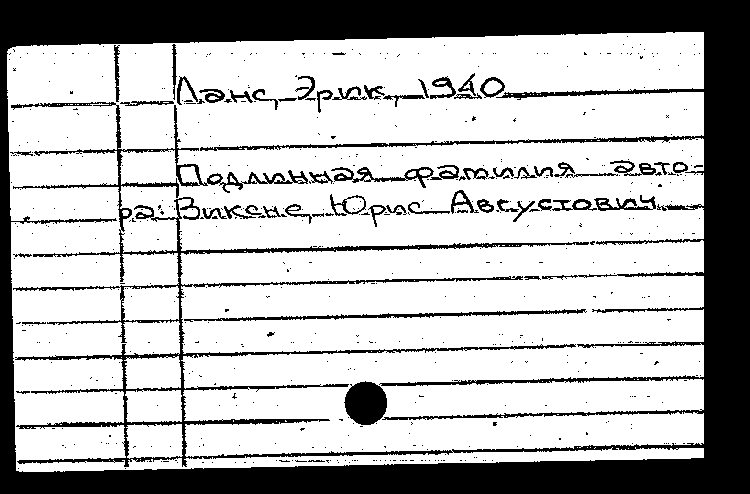 Ланс, Эрик, 1940
Подлинная фамилия авто=
ра: Виксне, Юрис Августович